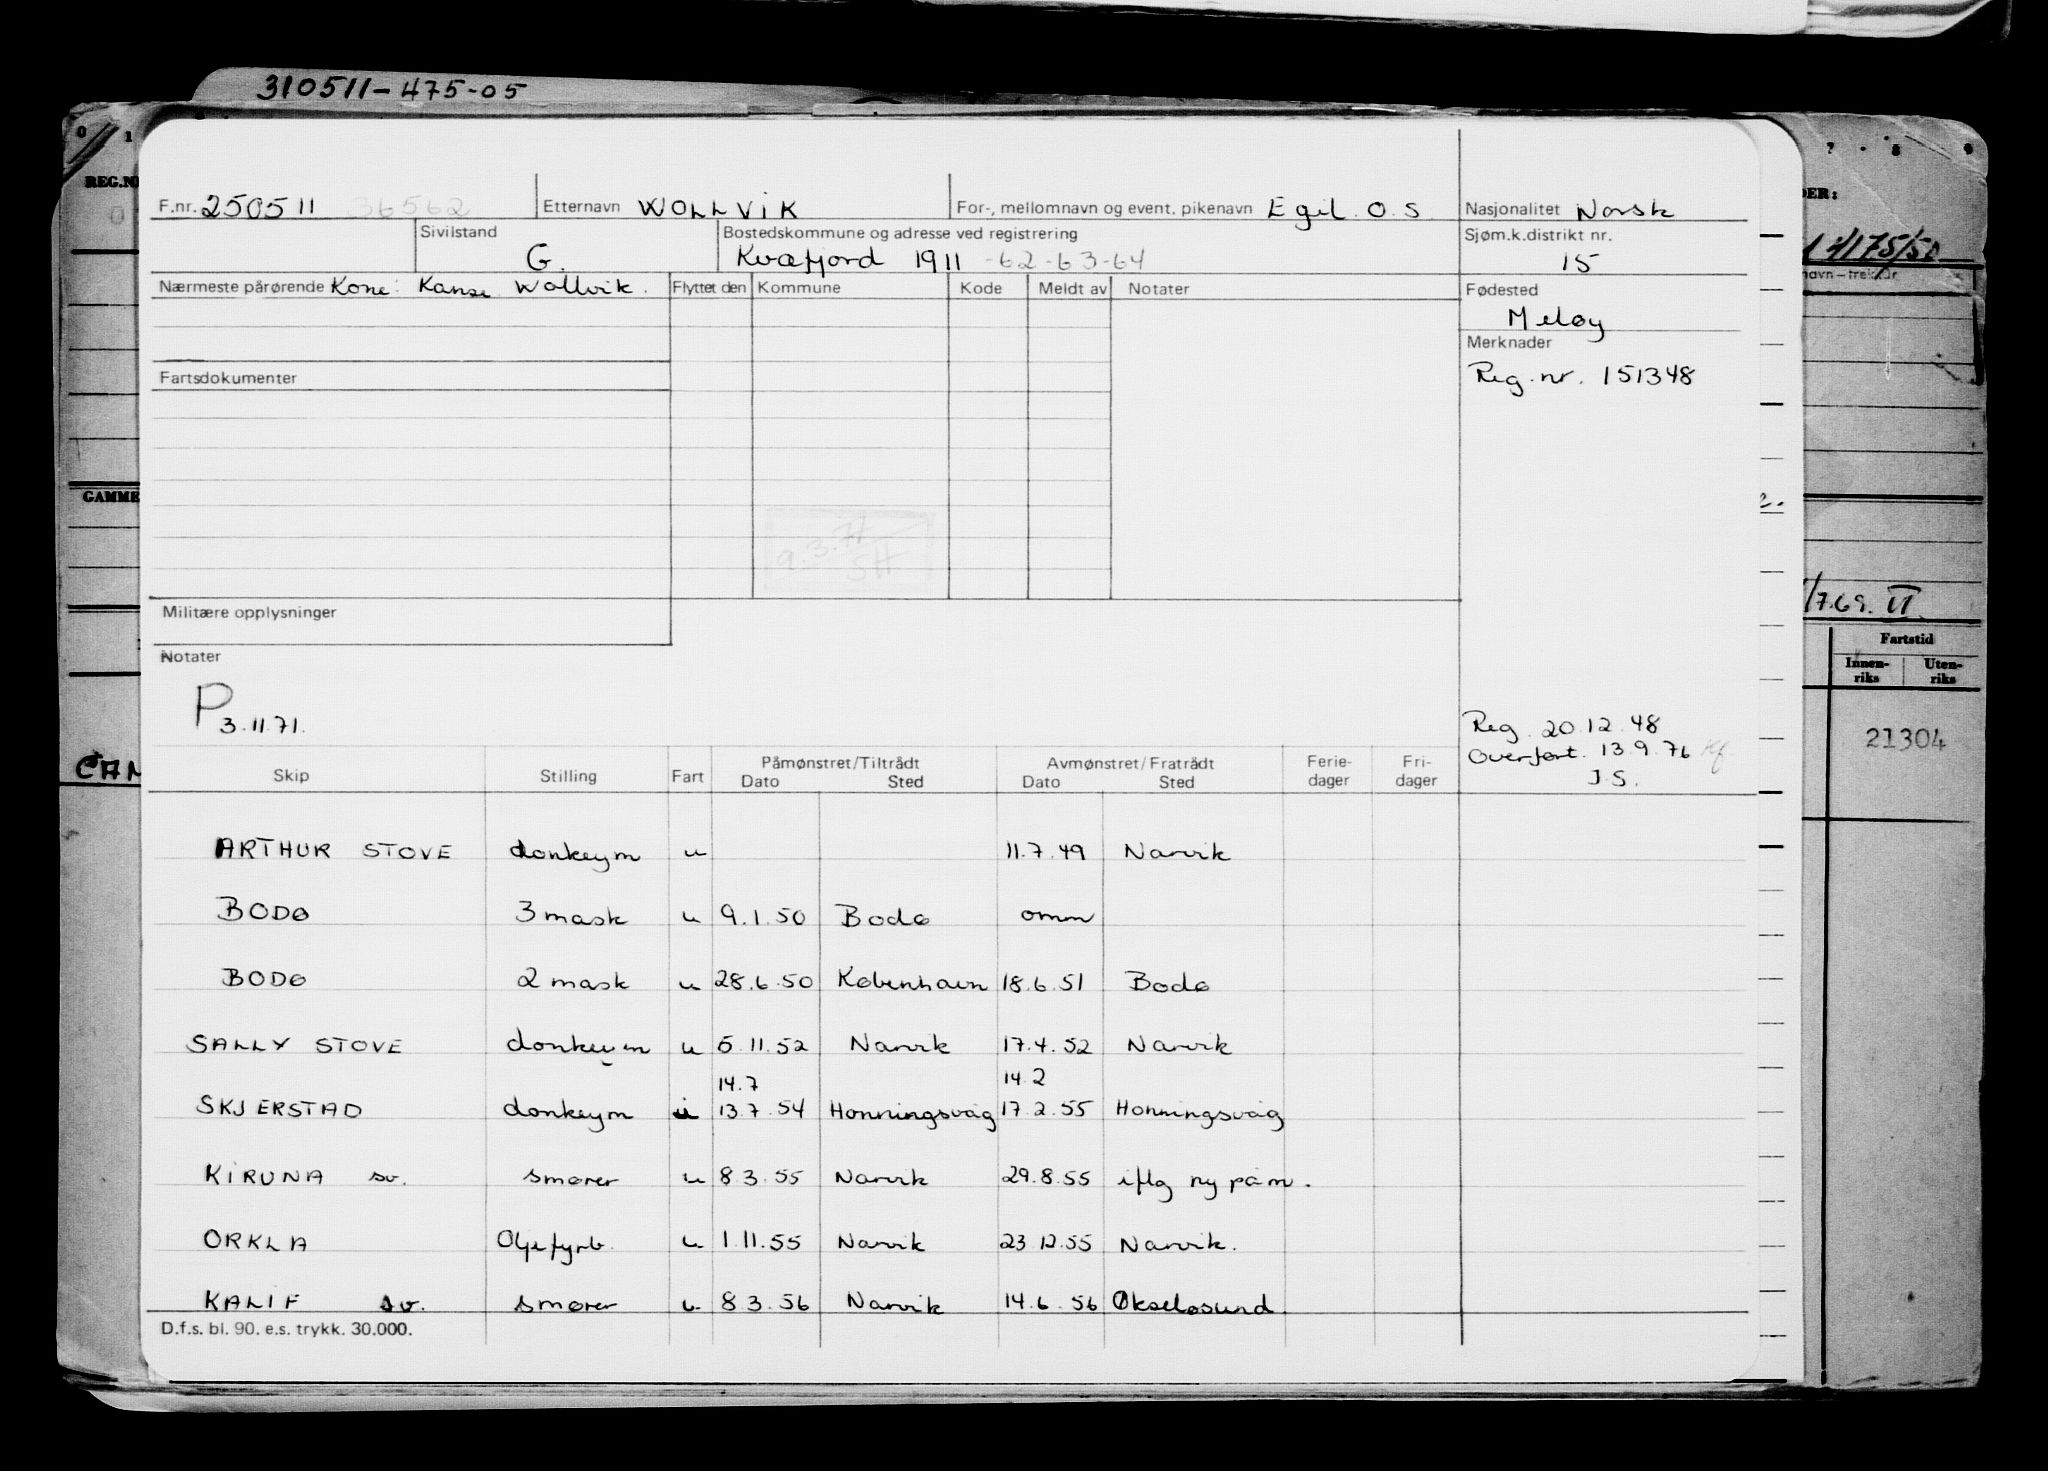 310511-475-05
0 1 7 8 9
REG.NR
F.nr. 250511 36562 Etternavn WOLLVIK For-, mellomnavn og event. pikenavn Egil O.S. Nasjonalitet Norsk
Sivilstand G. Bostedskommune og adresse ved registrering Kvæfjord 1911 -62-63-64 Sjøm.k.distrikt nr. 15
Nærmeste pårørende Kone: Wollvik. Flyttet den Kommune Kode Meldt av Notater Fødested
Meløy
Merknader
Fartsdokumenter Reg.nr. 151348
GAMME
9.3.71
SH
Militære opplysninger
/7.69. II
Notater
Fartstid
Innen-riks Uten-riks
P 3.11.71.
Reg. 20.12.48
21304
Overført. 13.9.76
J.S.
Skip Stilling Fart Påmønstret/Tiltrådt Dato Sted Avmønstret/Fratrådt Dato Sted Ferie-dager Fri-dager
ARTHUR STOVE donkeym u 11.7.49 Narvik
BODØ 3 mask u 9.1.50 Bodø omm
BODØ 2 mask u 28.6.50 København 18.6.51 Bodø
SALLY STOVE donkeym u 5.11.52 Narvik 17.4.52 Narvik
14.7 14.2
SKJERSTAD donkeym i 13.7.54 Honningsvåg 17.2.55 Honningsvåg
KIRUNA sv. smører u 8.3.55 Narvik 29.8.55 iflg ny påm.
ORKLA Oljefyrb. u 1.11.55 Narvik 23.12.55 Narvik.
KALIF sv. smører u. 8.3.56 Narvik 14.6.56 Økseløsund
D.f.s. bl. 90. e.s. trykk. 30.000.